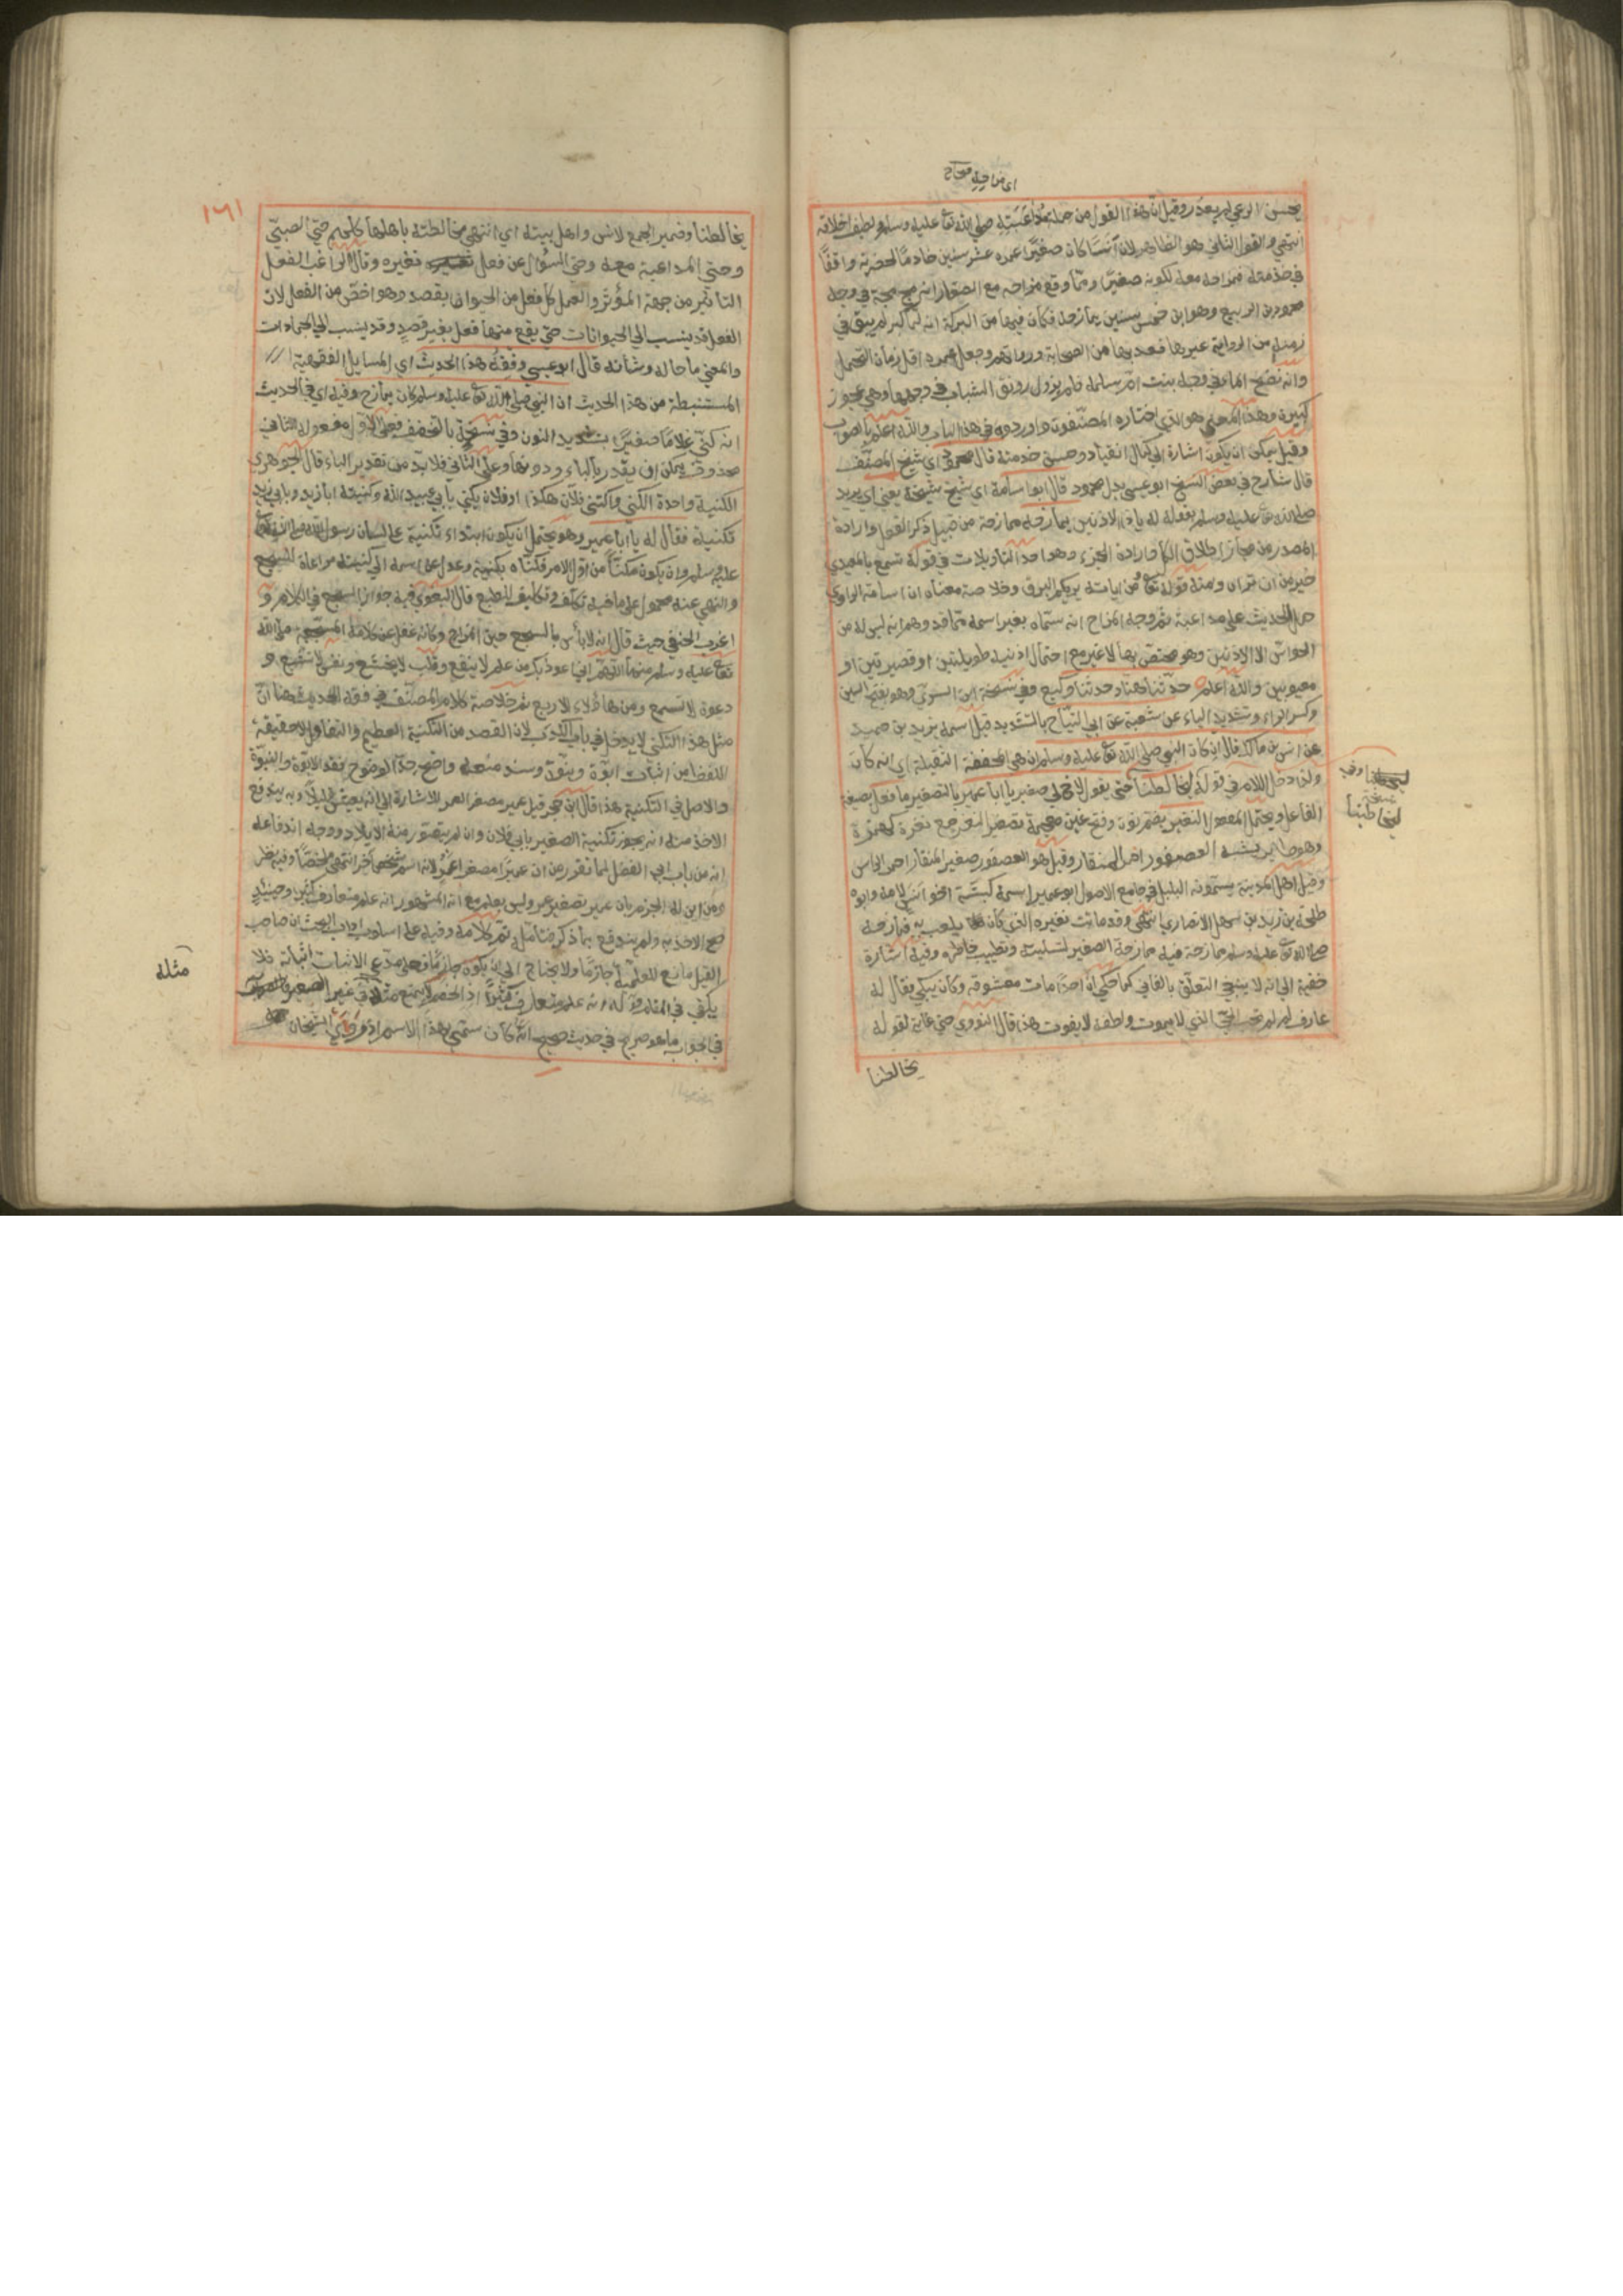 اي مزاحه صحاح
يحسن الوعي لم يعذر وقيل ان هذا القول من جملة مداعبته صلى الله تع عليه وسلم ولطيف اخلاقه
انتهى والقول الثاني هو الظاهر لان انسا كان صغيرا عمره عشر سنين خادما لحضرته واقفا
في خدمته فمزاحه معه لكونه صغيرا ومما وقع مزاحه مع الصغار انه مج مجة في وجه
محمود بن الربيع وهو ابن خمس سنين يمازحه فكان فيها من البركة انه لما كبر لم يبق في
ذهنه من الرواية غيرها فعد بها من الصحابة وجعل عمره اقل زمان التحمل
وانه نضح الماء في وجه بنت ام سلمة فلم يزول رونق الشباب في وجهها وهي عجوز
كبيرة وهذا المعنى هو الذي اختاره المصنفون واوردوه في هذا الباب والله اعلم بالصواب
وقيل يمكن ان يكون اشارة الى كمال انقياده وحسن خدمته قال محمود اي شيخ المصنف
قال شارح في بعض النسخ ابو عيسى بدل محمود قال ابو اسامة اي شيخ شيخه يعني اي يريد
صلى الله تع عليه وسلم بقوله له يا ذا الاذنين يمازحه ممازحة من قبيل ذكر الفعل وارادة
المصدر من مجاز اطلاق الكل وارادة الجزء وهو احد التاويلات في قوله تسمع بالمعيدي
خير من ان تراه ومنه قوله تع ومن اياته يريكم البرق وخلاصة معناه ان ابا سامة الراوي
حمل الحديث على مداعبة ثم وجه المزاح انه سماه بغير اسمه مما قد يوهم انه ليس له من
الحواس الا الاذنين وهو مختص بها لا غير مع احتمال اذنيه طويلتين او قصيرتين او
معيوبين والله اعلم حدثنا هناد حدثنا وكيع وفي نسخة ابن السري وهو بفتح السين
وكسر الراء وتشديد الياء عن شعبة عن ابي التياح بالتشديد قيل اسمه يزيد بن حميد
عن انس بن مالك قال ان كان النبي صلى الله تع عليه وسلم ان هي المخففة من الثقيلة اي انه كان
ولذا دخل اللام في قوله ليخالطنا حتى يقول لاخ لي صغير يا ابا عمير بالتصغير ما فعل بصيغة
الفاعل ويحتمل المفعول النغير بضم نون وفتح غين معجمة تصغير نغر جمع نغرة كهمزة
وهو طاير يشبه العصفور احمر المنقار وقيل هو العصفور صغير المنقار احمر الراس
وقيل اهل المدينة يسمونه البلبل في جامع الاصول ابو عمير اسمه كبشة اخو انس لامه وابوه
طلحة بن زيد بن سهل الانصاري انتهى وقد مات نغيره الذي كان يلعب به فمازحه
صلى الله تع عليه وسلم ممازحة فيه ممازحة الصغير لتسليته وتطييب خاطره وفيه اشارة
خفية الى انه لا ينبغي التعلق بالفاني كما حكي ان احدا مات معشوقه وكان يبكي فقال له
عارف لم لم تحب الحي الذي لا يموت ولطفه لا يفوت هذا قال النووي حتى غاية لقوله
يخالطنا
ليخاطبنا
نسخة
١٦١
يخالطنا وضمير الجمع لانس واهل بيته اي انتهى مخالطته باهلها كلهم حتى الصبي
وحتى المداعبة معه وحتى السؤال عن فعل نغيره وقال الراغب الفعل
التاثير من جهة المؤثر والعمل كل فعل من الحيوان بقصد وهو اخص من الفعل لان
الفعل قد ينسب الى الحيوانات حتى يقع منها فعل بغير قصد وقد ينسب الى الجمادات
والمعنى ما حاله وشانه قال ابو عيسى وفقه هذا الحديث اي المسايل الفقهية
المستنبطة من هذا الحديث ان النبي صلى الله تع عليه وسلم كان يمازح وفيه اي في الحديث
انه كنى غلاما صغيرا بتشديد النون وفي نسخة بالتخفيف فعلى الاول مفعوله الثاني
محذوف يمكن ان يقدر بالباء ودونها وعلى الثاني فلا بد من تقدير الباء قال الجوهري
الكنية واحدة الكنى واكتنى فلان هكذا وفلان يكنى بابي عبيد الله وكنيته ابا زيد وبابي زيد
تكنية فقال له يا ابا عمير وهو يحتمل ان يكون ابتداء تكنية على لسان رسول الله صلى الله تع
عليه وسلم وان يكون مكنا من اول الامر فكناه بكنيته وعدل عن اسمه الى كنيته مراعاة للسجع
والنهي عنه محمول على ما فيه تكلف وتكليف للطبع قال البغوي فيه جواز السجع في الكلام و
اغرب الحنفي حيث قال انه لا بأس بالسجع حين المزاح وكانه غفل عن كلامه المسجع صلى الله
تع عليه وسلم منها اللهم اني اعوذ بك من علم لا ينفع وقلب لا يخشع ونفس لا تشبع و
دعوة لا تسمع ومن هؤلاء الاربع ثم خلاصة كلام المصنف في فقه الحديث هنا ان
مثل هذا التكني لا يدخل في باب الكذب لان القصد من التكنية التعظيم والتفاؤل لا حقيقة
اللفظ من اثبات ابوة وبنوة
والاصل في التكنية هذا قال ابن حجر قيل عمير مصغر العمر للاشارة الى انه يعيش قليلا وبه يندفع
الاخذ منه انه يجوز تكنية الصغير بابي فلان وان لم يتصور منه الايلاد ووجه اندفاعه
انه من باب ابي الفضل لما تقرر من ان عميرا مصغر العمر لانه اسم شخص اخر انتهى ملخصا وفيه نظر
ومن اين له الجزم بان عمير تصغير عمر وليس بعلم مع انه المشهور انه علم متعارف كثيرا وحينئذ
صح الاخذ به ولم يندفع بما ذكر فتامل ثم كلامه وفيه على اسلوب اداب البحث ان صاحب
القيل مانع للعلمية جازما ولا يحتاج الى ان يكون جازما وعلى مدعي الاثبات اثباته فلا
يكفي في المقام قوله انه علم متعارف كثيرا اذ الخصم لا يمنع مثله في غير
في الجواب ما هو صريح في حديث صحيح انه كان سمي بهذا الاسم اذ قد روي الشيخان
مثله